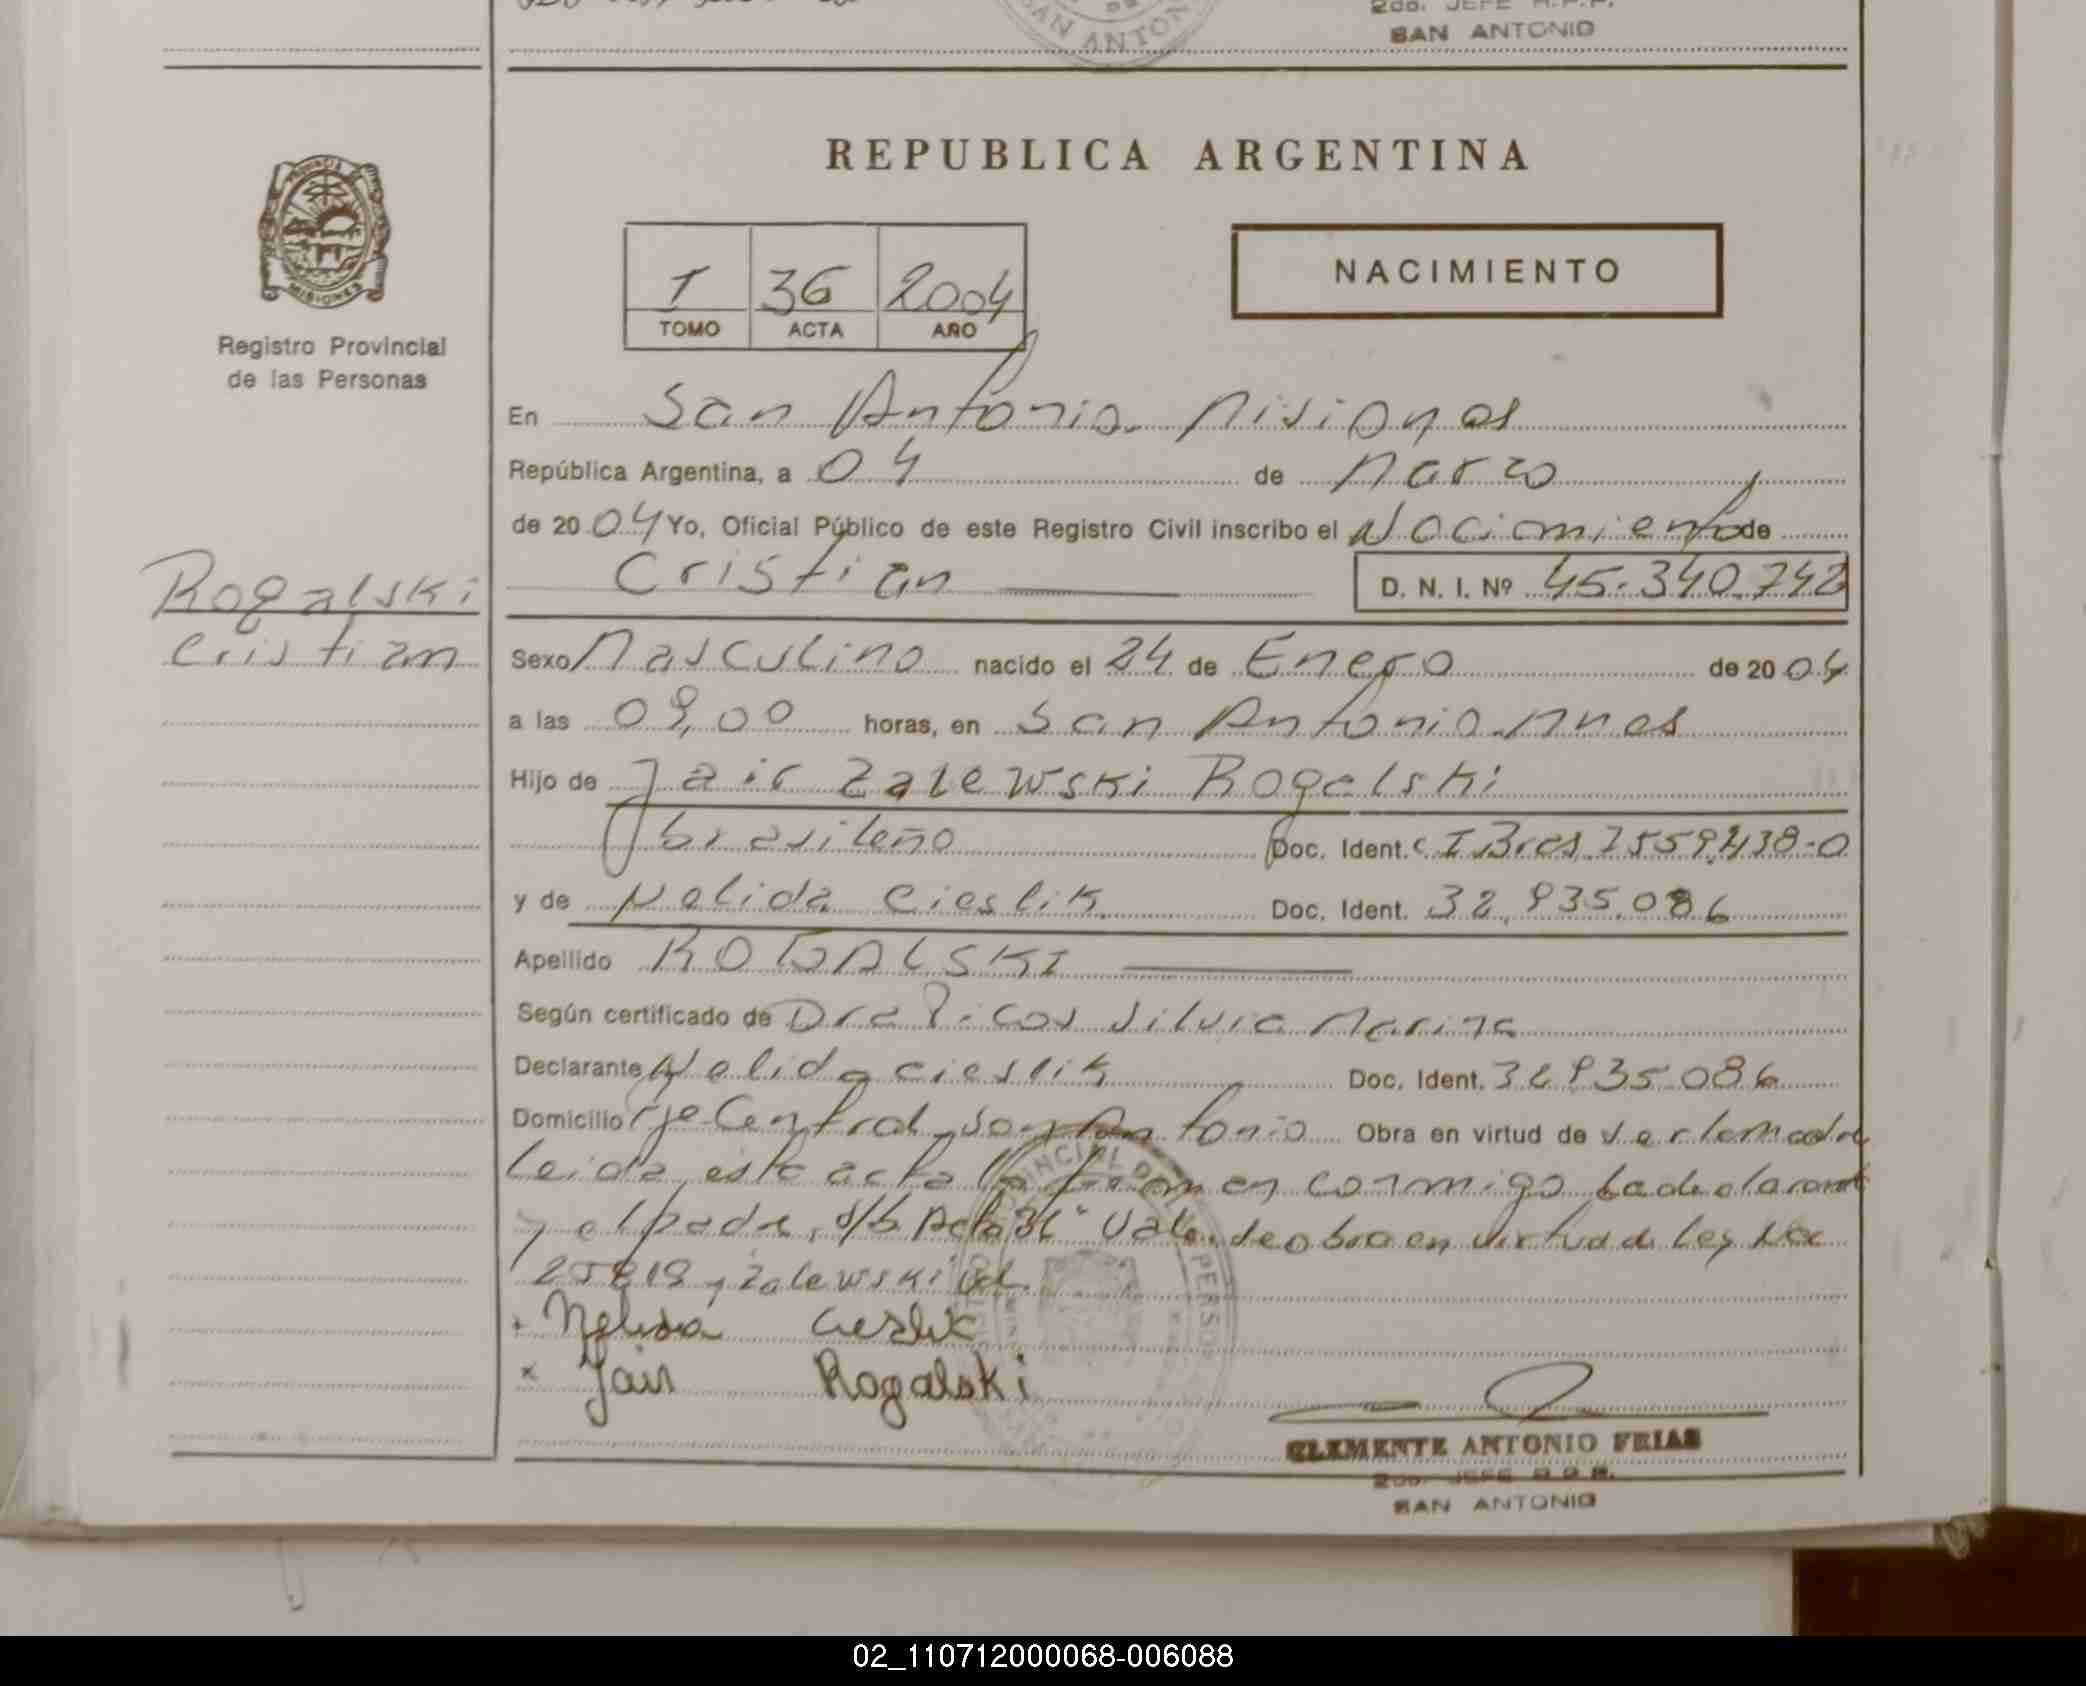 SAN ANTONIO
2do. JEFE R.P.P.
SAN ANTONIO
PROVINCIA DE
MISIONES
Registro Provincial
de las Personas
Rogalski
Cristian
REPUBLICA ARGENTINA
1 36 2004
TOMO ACTA AÑO
NACIMIENTO
En San Antonio. Misiones
República Argentina, a 04 de Marzo
de 2004 Yo, Oficial Público de este Registro Civil inscribo el Nacimiento de
Cristian D. N. I. Nº 45.340.742
Sexo Masculino nacido el 24 de Enero de 2004
a las 09,00 horas, en San Antonio Mnes
Hijo de Jair Zalewski Rogalski
brasileño Doc. Ident. C I Bras 7559.438-0
y de Nelida Cieslik Doc. Ident. 32.935.086
Apellido ROGALSKI
Según certificado de Dra Picos Silvia Marina
Declarante Nelida Cieslik Doc. Ident. 32935.086
Domicilio Pje Central San Antonio Obra en virtud de ser la madre
Leida este acta la firman conmigo la declarante
y el padre, s/b Acta "36" Vale, de obra en virtud de Ley Nro
25819, Zalewski vale.
Nelida Cieslik
x Jair Rogalski
CLEMENTE ANTONIO FRIAS
2do. JEFE R.P.P.
SAN ANTONIO
02_110712000068-006088